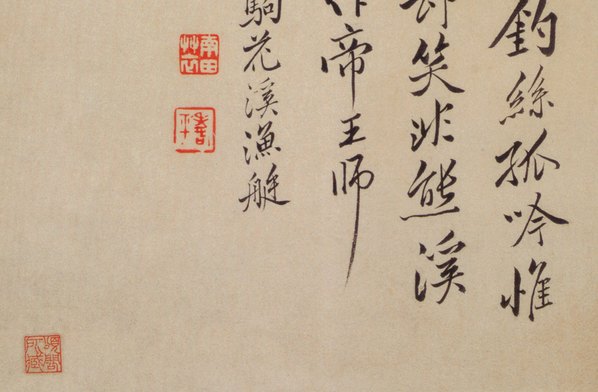 釣絲孤吟惟
笑非熊溪
作帝王師
駒花溪漁艇
南田艸衣
壽平